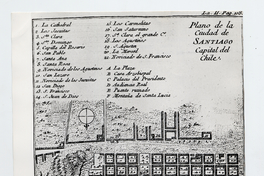 La. II. Pag. 318.
Plano de la
Ciudad de
SANTIAGO
Capital del
Chile.
1 La Cathedral
2 Los Jesuitas
3 Sta. Clara
4 Sto. Domingo
5 Capilla del Rosario
6 San Pablo
7 Santa Ana
8 Santa Rosa
9 Noviciado de los Agustinos
10 San Lazaro
11 Noviciado de los Jesuitas
12 San Diego
13 S. Francisco
14 S. Juan de Dios
15 Los Carmelitas
16 San Saturnino
17 Sta. Clara, el grande C.
18 Los Agustinos
19 S. Agustin
20 La Merced
21 Noviciado de S. Francisco
A La Plaza
B Casa Arzobispal
C Palacio del Presidente
D Audiencia Real
E Puente ruinado
F Montaña de Santa Lucia